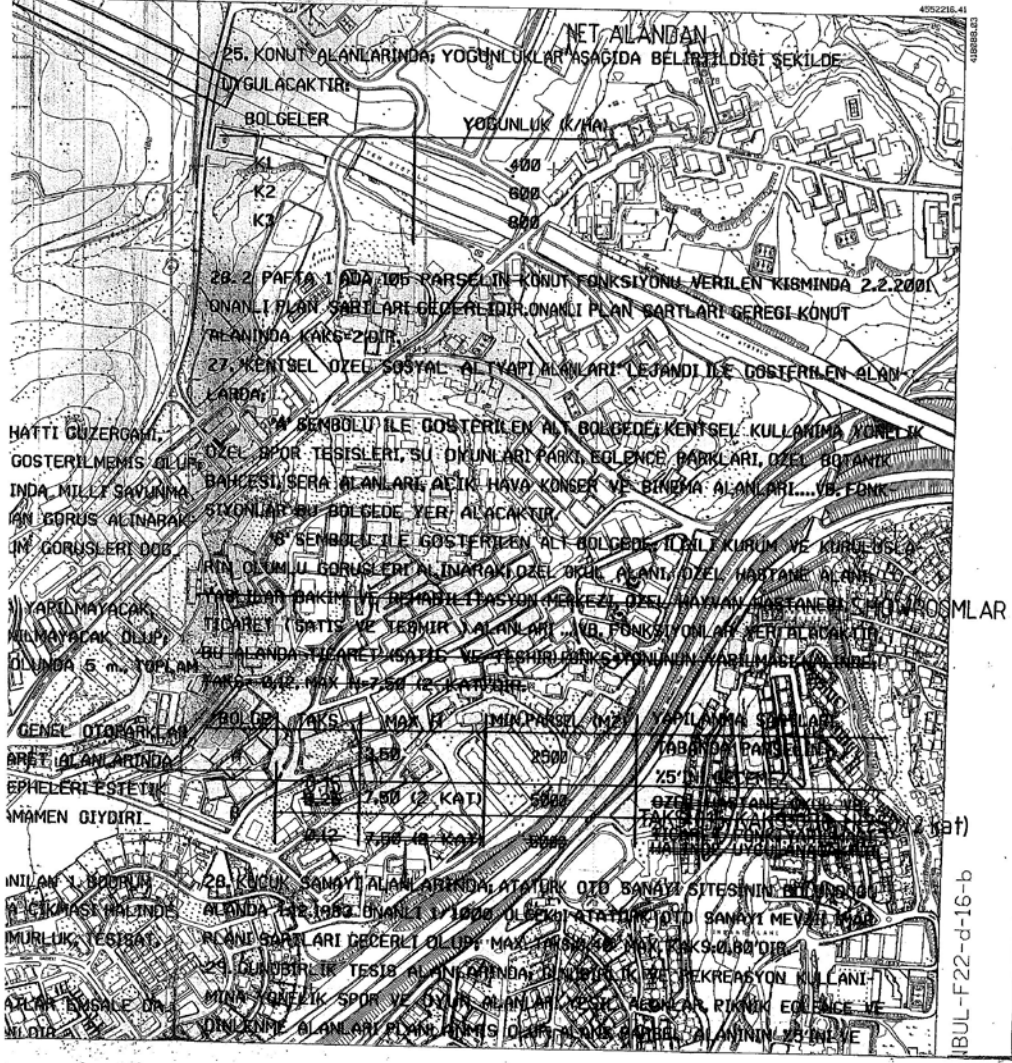 4552216.41
418088.03
NET ALANDAN
25. KONUT ALANLARINDA; YOĞUNLUKLAR AŞAĞIDA BELİRTİLDİĞİ ŞEKİLDE
UYGULACAKTIR:
BOLGELER YOGUNLUK (K/HA)
K1 400
K2 600
K3 800
26. 2 PAFTA 1 ADA 105 PARSELIN KONUT FONKSIYONU VERILEN KISMINDA 2.2.2001
ONANLI PLAN SARTLARI GECERLIDIR. ONANLI PLAN SARTLARI GEREGI KONUT
ALANINDA KAKS=2'DIR.
27. "KENTSEL OZEL SOSYAL ALTYAPI ALANLARI" LEJANDI ILE GOSTERILEN ALAN-
LARDA;
"A" SEMBOLU ILE GOSTERILEN ALT BOLGEDE; KENTSEL KULLANIMA YONELIK
OZEL SPOR TESISLERI, SU OYUNLARI PARKI, EGLENCE PARKLARI, OZEL BOTANIK
BAHCESI, SERA ALANLARI, ACIK HAVA KONSER VE SINEMA ALANLARI....VB. FONK-
SIYONLAR BU BOLGEDE YER ALACAKTIR.
"B" SEMBOLU ILE GOSTERILEN ALT BOLGEDE; ILGILI KURUM VE KURULUSLA-
RIN OLUMLU GORUSLERI ALINARAK; OZEL OKUL ALANI, OZEL HASTANE ALANI,
YASLILAR BAKIM VE REHABILITASYON MERKEZI, OZEL HAYVAN HASTANESI, SHOWROOMLAR
TICARET (SATIS VE TESHIR) ALANLARI ...VB. FONKSIYONLAR YER ALACAKTIR.
BU ALANDA TICARET (SATIS VE TESHIR) FONKSIYONUNUN YAPILMASI HALINDE;
TAKS= 0.12, MAX H=7.50 (2 KAT)'DIR.
BOLGE TAKS MAX H MIN.PARSEL (M2) YAPILANMA SARTLARI
A 3.50 2500 TABANDA PARSELIN
%5'INI GECEMEZ
B 0.25 7.50 (2 KAT) 5000 OZEL HASTANE OKUL VB.
0.12 7.50 (2 KAT) 5000
28. KUCUK SANAYI ALANLARINDA; ATATURK OTO SANAYI SITESININ BULUNDUGU
ALANDA 1.12.1983 ONANLI 1/1000 OLCEKLI ATATURK OTO SANAYI MEVZII IMAR
PLANI SARTLARI GECERLI OLUP; MAX. TAKS:0.40 MAX. KAKS:0.80'DIR.
29. GUNUBIRLIK TESIS ALANLARINDA; GUNUBIRLIK VE REKREASYON KULLANI-
MINA YONELIK SPOR VE OYUN ALANLARI, YESIL ALANLAR, PIKNIK EGLENCE VE
DINLENME ALANLARI PLANLANMIS OLUP; PARSEL ALANININ %5'INI VE
HATTI GUZERGAHI,
GOSTERILMEMIS OLUP,
INDA MILLI SAVUNMA
AN GORUS ALINARAK
UM GORUSLERI DOG_
YAPILMAYACAK,
ILMAYACAK OLUP;
OLUNDA 5 m. TOPLAM
GENEL OTOPARKLAR
ARET ALANLARINDA
EPHELERI ESTETIK
AMAMEN GIYDIRI_
ANILAN 1. BODRUM
A CIKMASI HALINDE
MURLUK, TESISAT,
ATLAR EMSALE DA_
NLDIR.
IBUL-F22-d-16-b